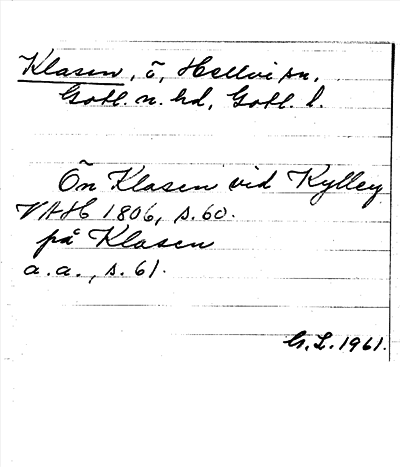 Klasen, ö, Hellvi sn,
Gotl. n. hd, Gotl. l.
Ön Klasen vid Kylley
VAH 1806, s. 60.
på Klasen
a. a., s. 61.
G. L. 1961.